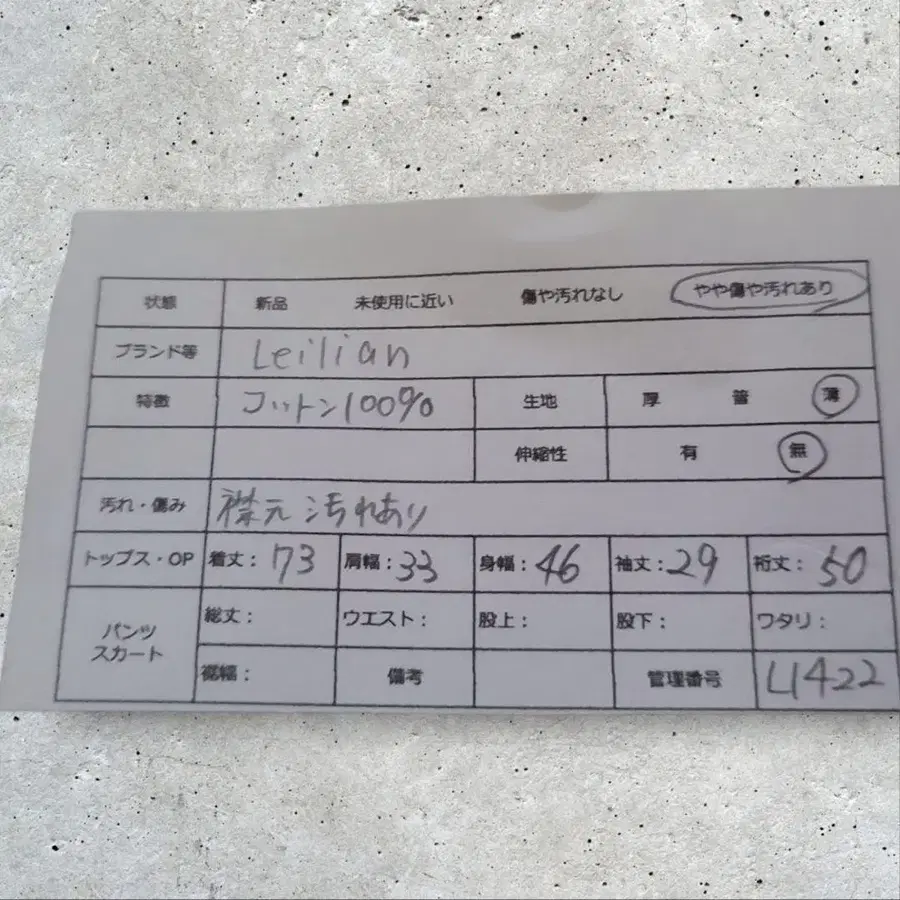 状態 新品 未使用に近い 傷や汚れなし やや傷や汚れあり
ブランド等 Leilian
特徴 コットン100% 生地 厚 普 薄
伸縮性 有 無
汚れ・傷み 襟元 汚れあり
トップス・OP 着丈：73 肩幅：33 身幅：46 袖丈：29 裄丈：50
パンツ スカート 総丈： ウエスト： 股上： 股下： ワタリ：
裾幅： 備考 管理番号 L1422